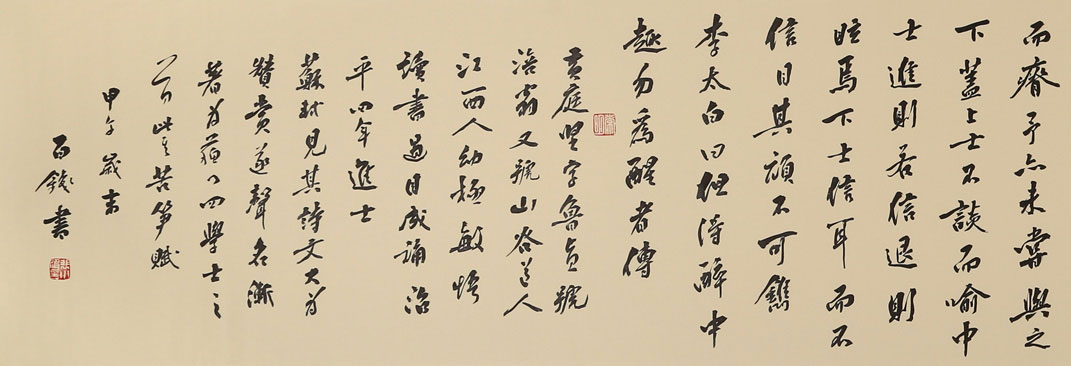 而瘠予亦未嘗與之
下蓋上士不談而喻中
士進則若信退則
眩焉下士信耳而不
信目其頑不可鐫
李太白曰但得醉中
趣勿為醒者傳
黃庭堅字魯直號
涪翁又號山谷道人
江西人幼極敏悟
讀書過目成誦治
平四年進士
蘇軾見其詩文大為
贊賞遂聲名漸
著為蘇門四學士之
一此苦笋賦
甲午歲末
百書